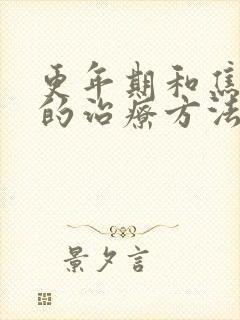 更年期和焦
的治疗方法
景夕言